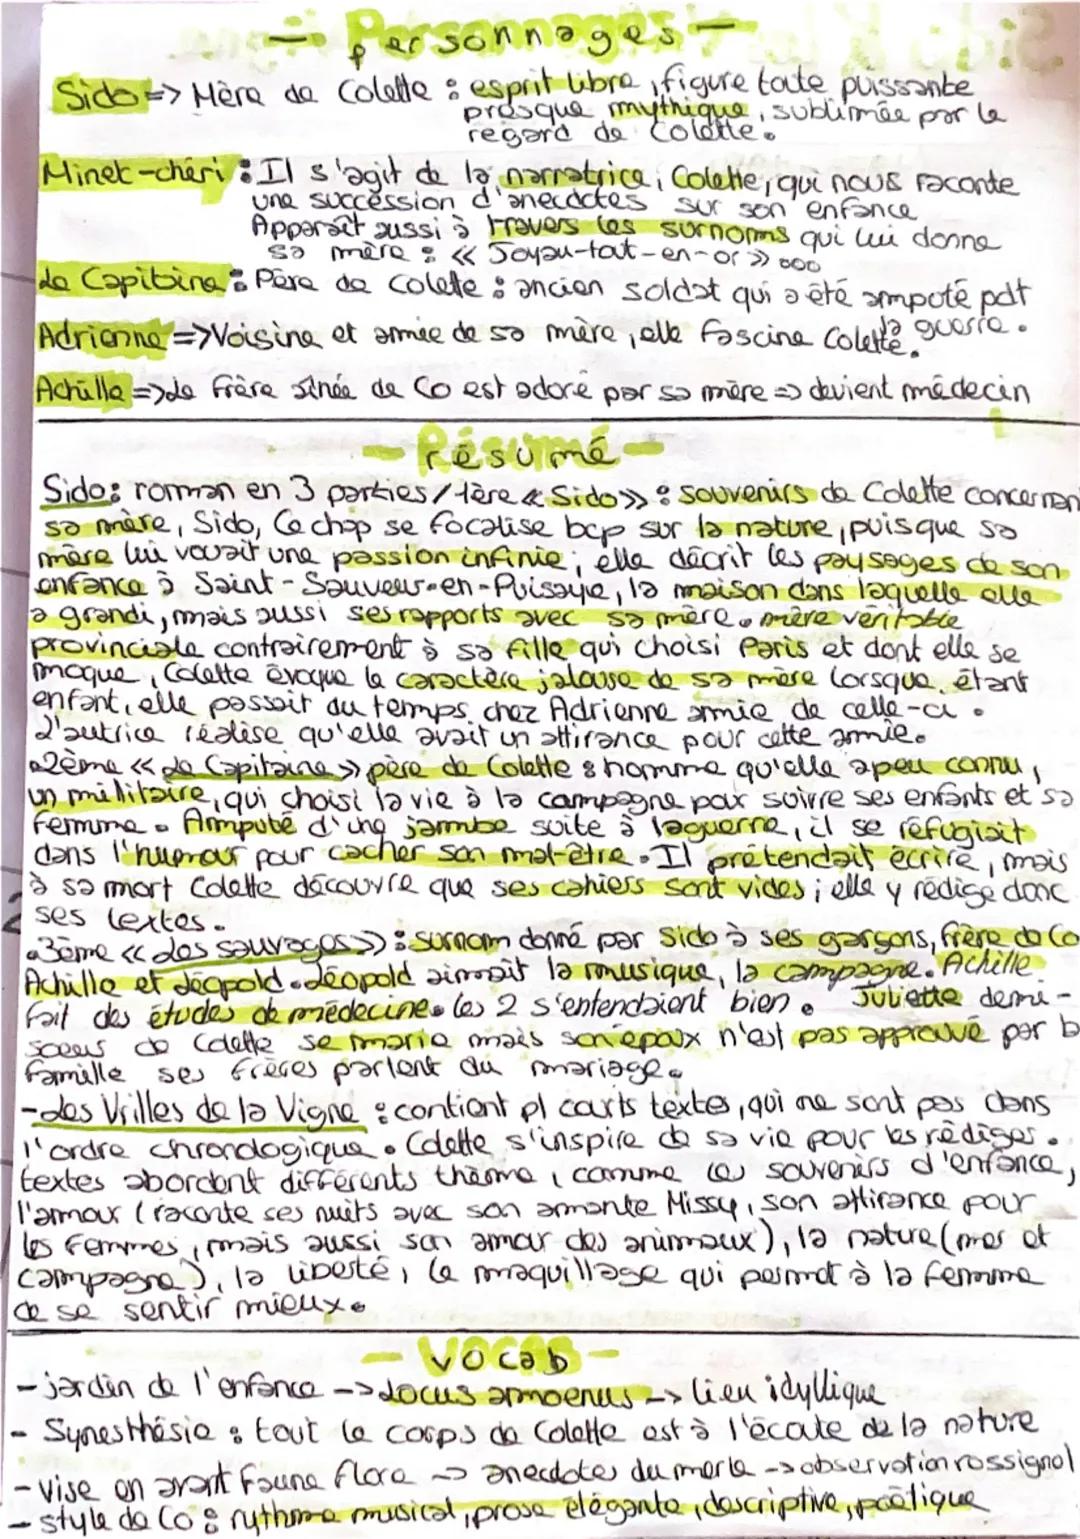 - Personnages -
Sido => Mère de Colette : esprit libre, figure toute puissante
presque mythique, sublimée par le
regard de Colette.
Minet-chéri : Il s'agit de la narratrice, Colette, qui nous raconte
une succession d'anecdotes sur son enfance
Apparaît aussi à travers les surnoms qui lui donne
sa mère : « Joyau-tout-en-or » ...
Le Capitaine : Père de Colette : ancien soldat qui a été amputé pdt
la guerre.
Adrienne => Voisine et amie de sa mère, elle fascine Colette.
Achille => Le frère ainée de Co est adoré par sa mère => devient médecin
- Résumé -
Sido : roman en 3 parties / 1ère « Sido » : souvenirs de Colette concernant
sa mère, Sido, Ce chap se focalise bcp sur la nature, puisque sa
mère lui vouait une passion infinie ; elle décrit les paysages de son
enfance à Saint-Sauveur-en-Puisaye, la maison dans laquelle elle
a grandi, mais aussi ses rapports avec sa mère. mère véritable
provinciale contrairement à sa fille qui choisi Paris et dont elle se
moque, Colette évoque le caractère jalouse de sa mère lorsque, étant
enfant, elle passait du temps chez Adrienne amie de celle-ci.
L'autrice réalise qu'elle avait un attirance pour cette amie.
.2ème « Le Capitaine » père de Colette : homme qu'elle a peu connu,
un militaire, qui choisi la vie à la campagne pour suivre ses enfants et sa
femme. Amputé d'une jambe suite à la guerre, il se réfugiait
dans l'humour pour cacher son mal-être. Il prétendait écrire, mais
à sa mort Colette découvre que ses cahiers sont vides ; elle y rédige donc
ses textes.
.3ème « Les sauvages » : surnom donné par Sido à ses garçons, frère de Co
Achille et Léopold. Léopold aimait la musique, la campagne. Achille
fait des études de médecine. les 2 s'entendaient bien. Juliette demi-
soeur de Colette se marie mais son époux n'est pas approuvé par la
famille ses frères parlent du mariage.
- Les Vrilles de la Vigne : contient pl courts textes, qui ne sont pas dans
l'ordre chronologique. Colette s'inspire de sa vie pour les rédiger.
textes abordent différents thème, comme les souvenirs d'enfance,
l'amour (raconte ses nuits avec son amante Missy, son attirance pour
les femmes, mais aussi son amour des animaux), la nature (mer et
campagne), la liberté, le maquillage qui permet à la femme
de se sentir mieux.
- Vocab -
- jardin de l'enfance -> Locus amoenus -> lieu idyllique
- Synesthésie : tout le corps de Colette est à l'écoute de la nature
- vise en avant Faune flore -> anecdotes du merle -> observation rossignol
- style de Co : rythme musical, prose élégante, descriptive, poétique